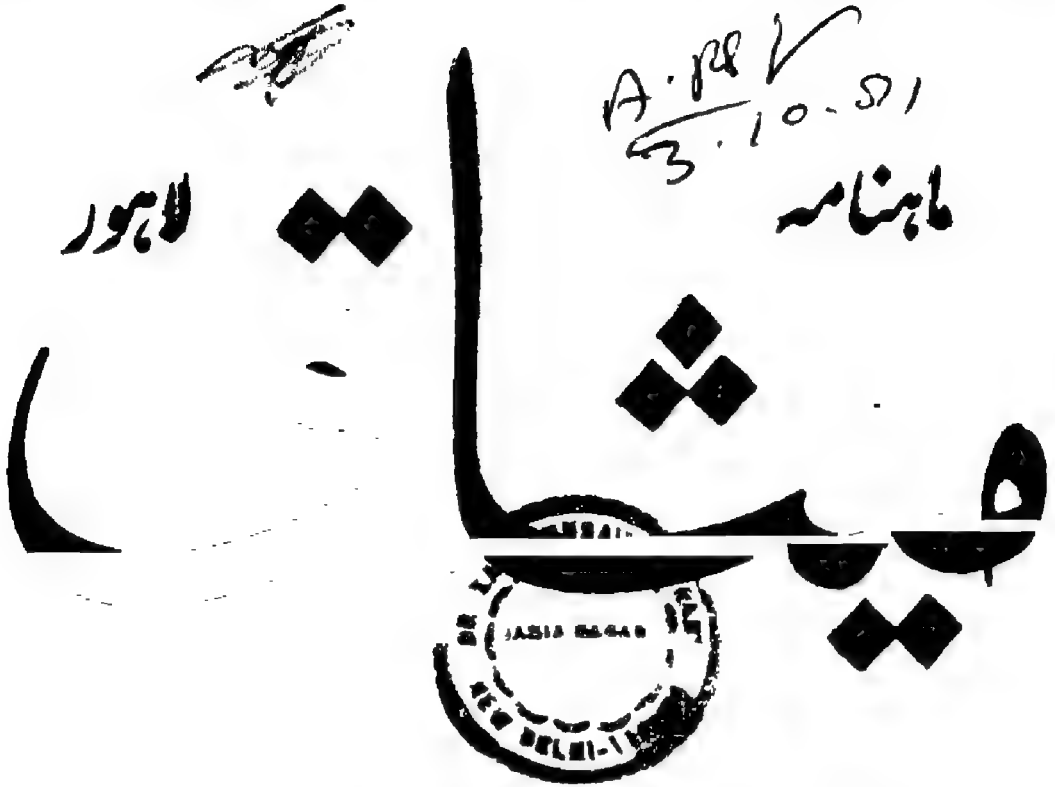 A. px
3.10.81
ماہنامہ
لاہور
میثاق
JAMIA NAGAR
NEW DELHI-1